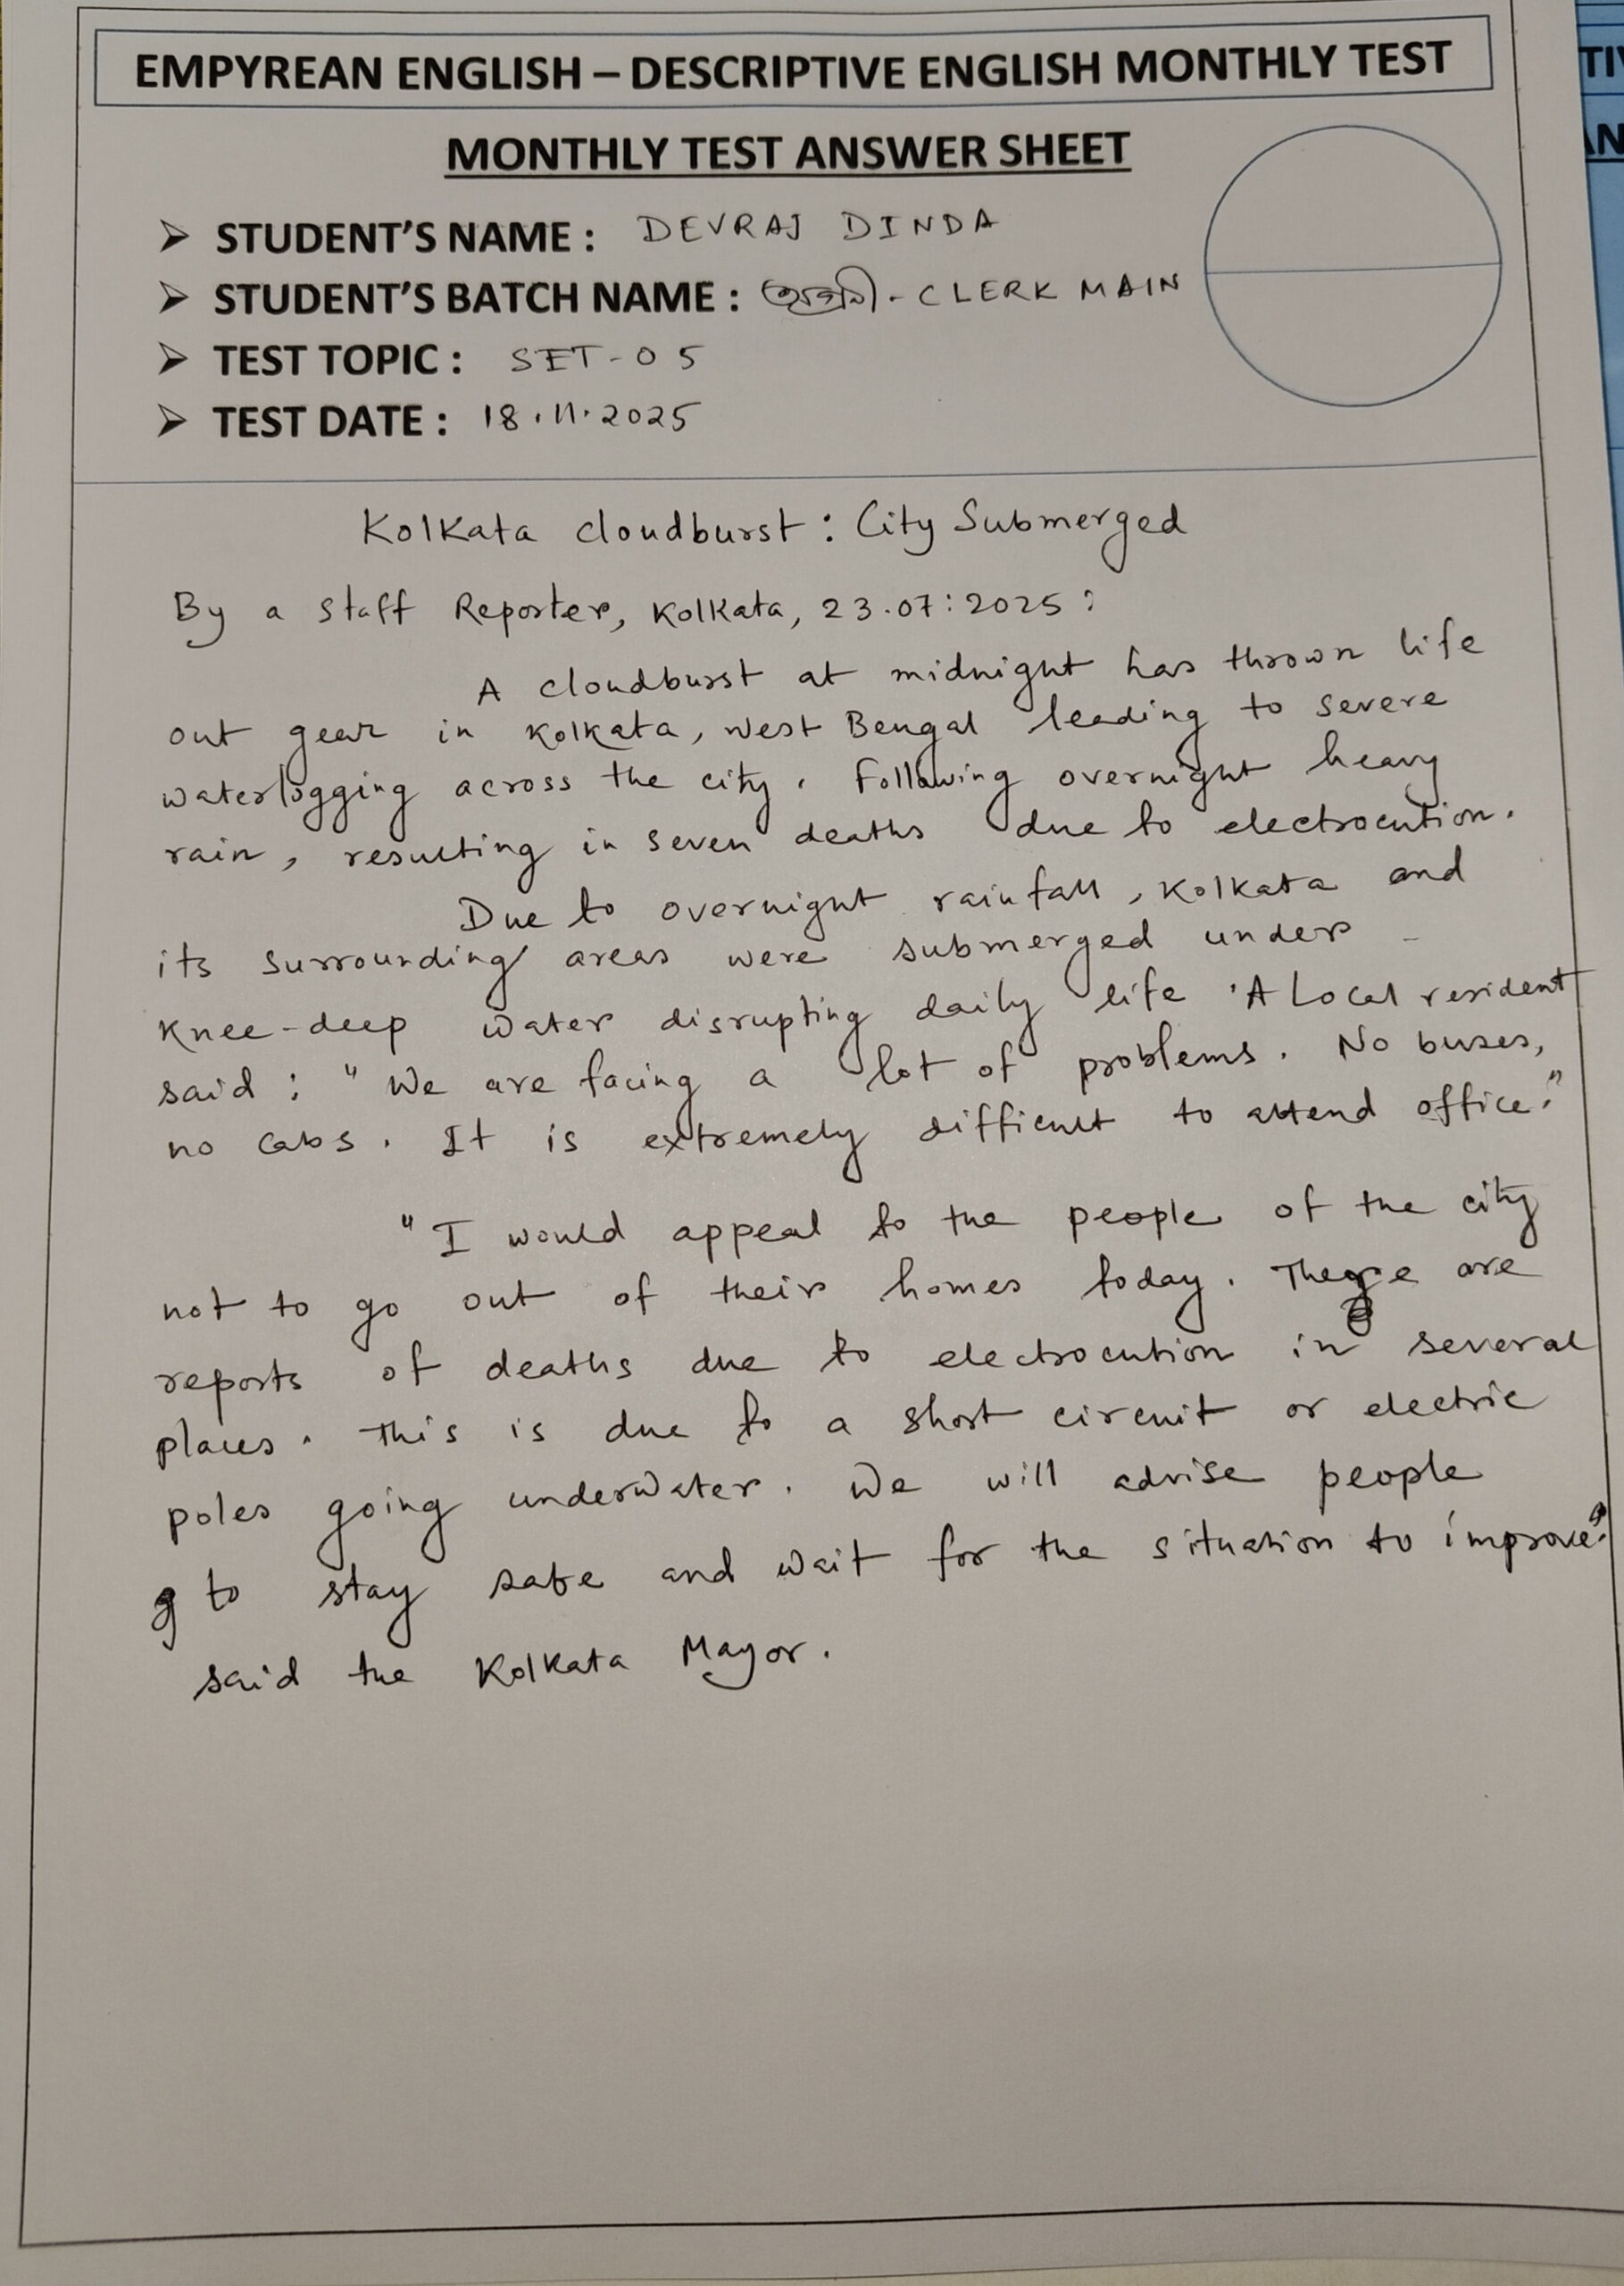 EMPYREAN ENGLISH – DESCRIPTIVE ENGLISH MONTHLY TEST
MONTHLY TEST ANSWER SHEET
➤ STUDENT'S NAME : DEVRAJ DINDA
➤ STUDENT'S BATCH NAME : - CLERK MAIN
➤ TEST TOPIC : SET-05
➤ TEST DATE : 18.11.2025
Kolkata cloudburst : City Submerged
By a Staff Reporter, Kolkata, 23.07:2025:
A cloudburst at midnight has thrown life
out gear in Kolkata, West Bengal leading to severe
waterlogging across the city. Following overnight heavy
rain, resulting in seven deaths due to electrocution.
Due to overnight rainfall, Kolkata and
its surrounding areas were submerged under -
knee-deep water disrupting daily life. A Local resident
said : "We are facing a lot of problems. No buses,
no cabs. It is extremely difficult to attend office."
"I would appeal to the people of the city
not to go out of their homes today. There are
reports of deaths due to electrocution in several
places. This is due to a short circuit or electric
poles going underwater. We will advise people
to stay safe and wait for the situation to improve."
said the Kolkata Mayor.